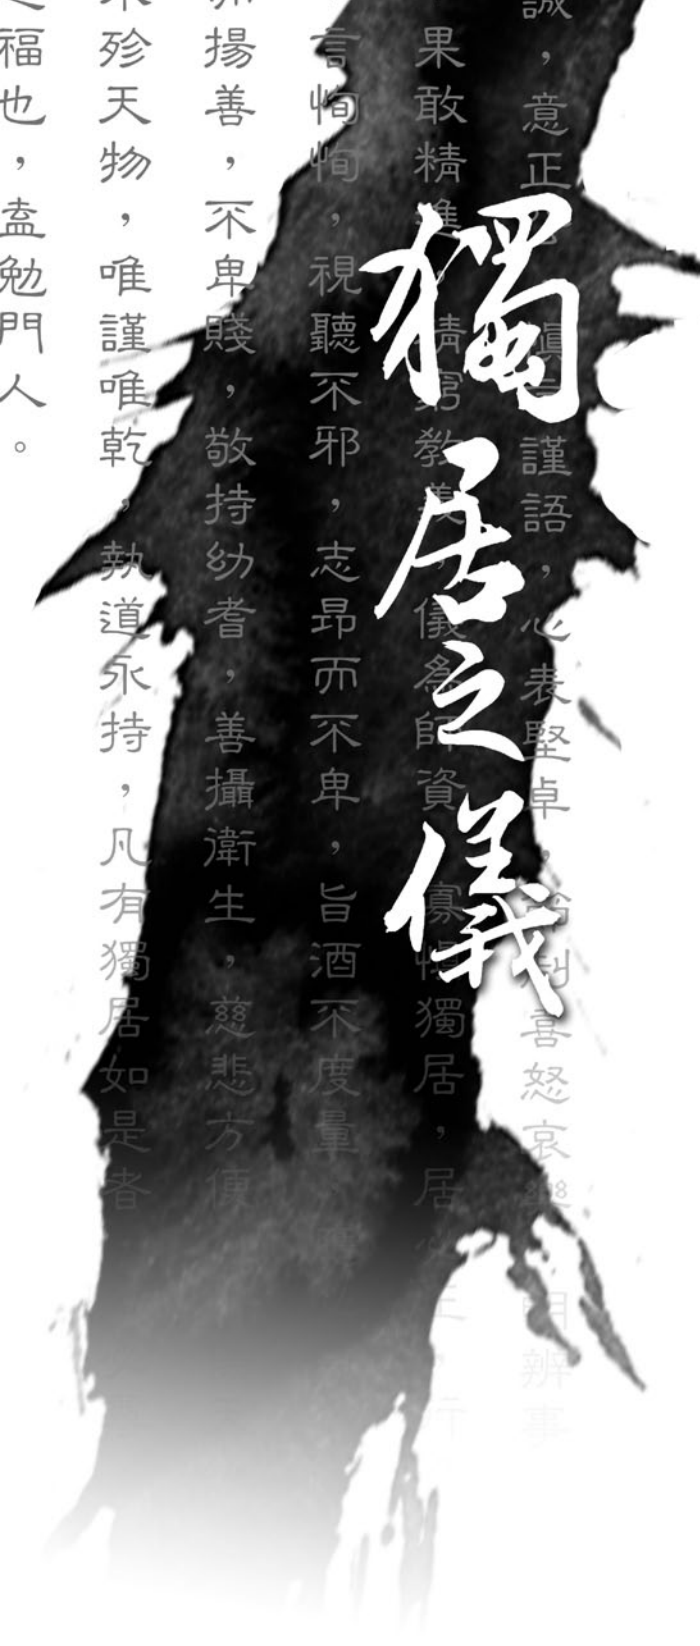 獨居之儀
誠，意正
謹語，心表堅卓，
喜怒哀樂
明辨事
果敢精進，精窮教義，儀為師資，寡慎獨居，居
行
言恂恂，視聽不邪，志昂而不卑，旨酒不度量，
揚善，不卑賤，敬持幼耆，善攝衛生，慈悲方便
殄天物，唯謹唯乾，執道永持，凡有獨居如是者
福也，盍勉門人。